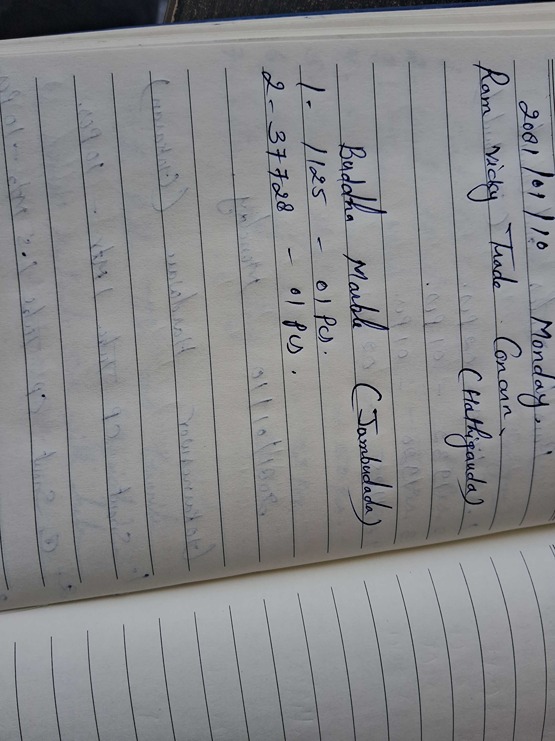 2081/01/10 Monday,
Ram Vicky Trade Concern,
(Hathigauda)
Buddha Marble (Jambudada)
1- 1125 - 01 Pcs.
2- 37728 - 01 Pcs.